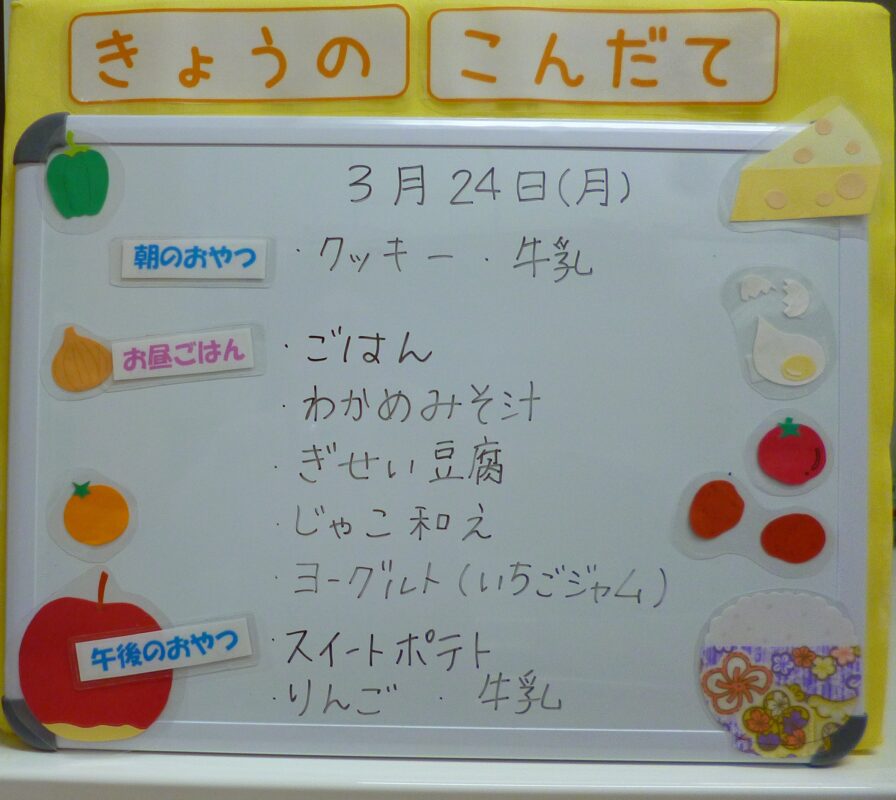 きょうの こんだて
3月24日(月)
朝のおやつ ・クッキー ・牛乳
お昼ごはん ・ごはん
・わかめみそ汁
・ぎせい豆腐
・じゃこ和え
・ヨーグルト(いちごジャム)
午後のおやつ ・スイートポテト
・りんご ・牛乳